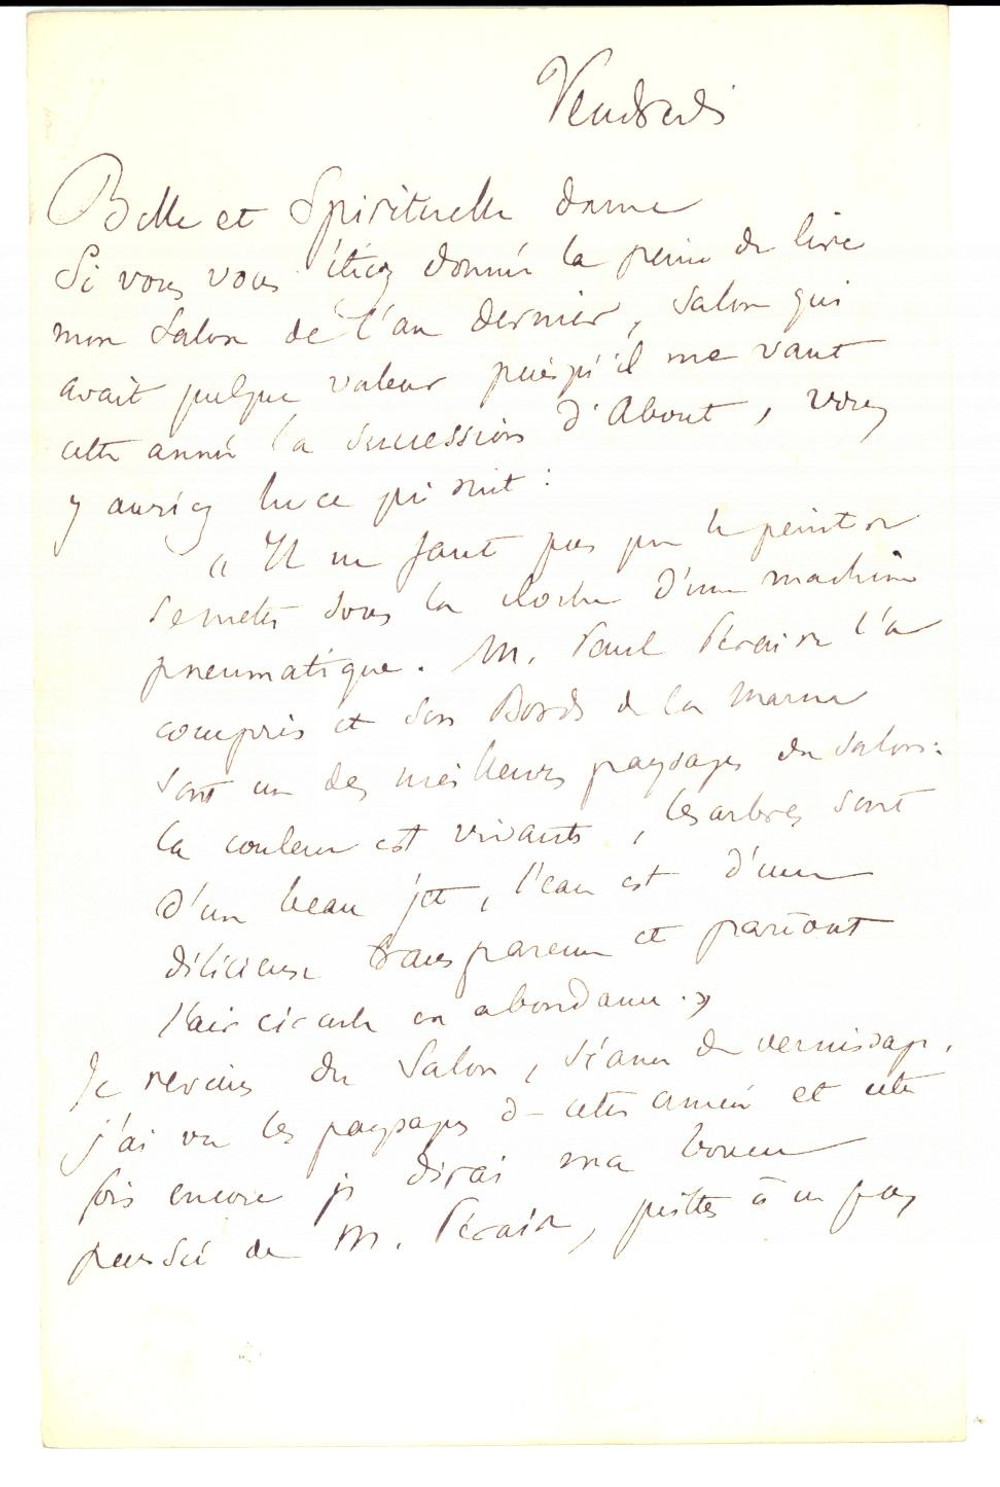 Vendredi
Belle et Spirituelle dame
Si vous vous étiez donné la peine de lire
mon Salon de l'an dernier, Salon qui
avait quelque valeur puisqu'il me vaut
cette année la succession d'About, vous
y auriez lu ce qui suit :
« Il ne faut pas que le peintre
se mette sous la cloche d'une machine
pneumatique. M. Paul Péraire l'a
compris et ses Bords de la Marne
sont un des meilleurs paysages du Salon :
la couleur est vivante, les arbres sont
d'un beau jet, l'eau est d'une
délicieuse transparence et partout
l'air circule en abondance. »
Je reviens du Salon, séance de vernissage.
j'ai vu les paysages de cette année et cette
fois encore je dirai ma bonne
pensée de M. Péraire, quitte à ne pas